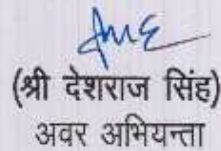 (श्री देशराज सिंह)
अवर अभियन्ता